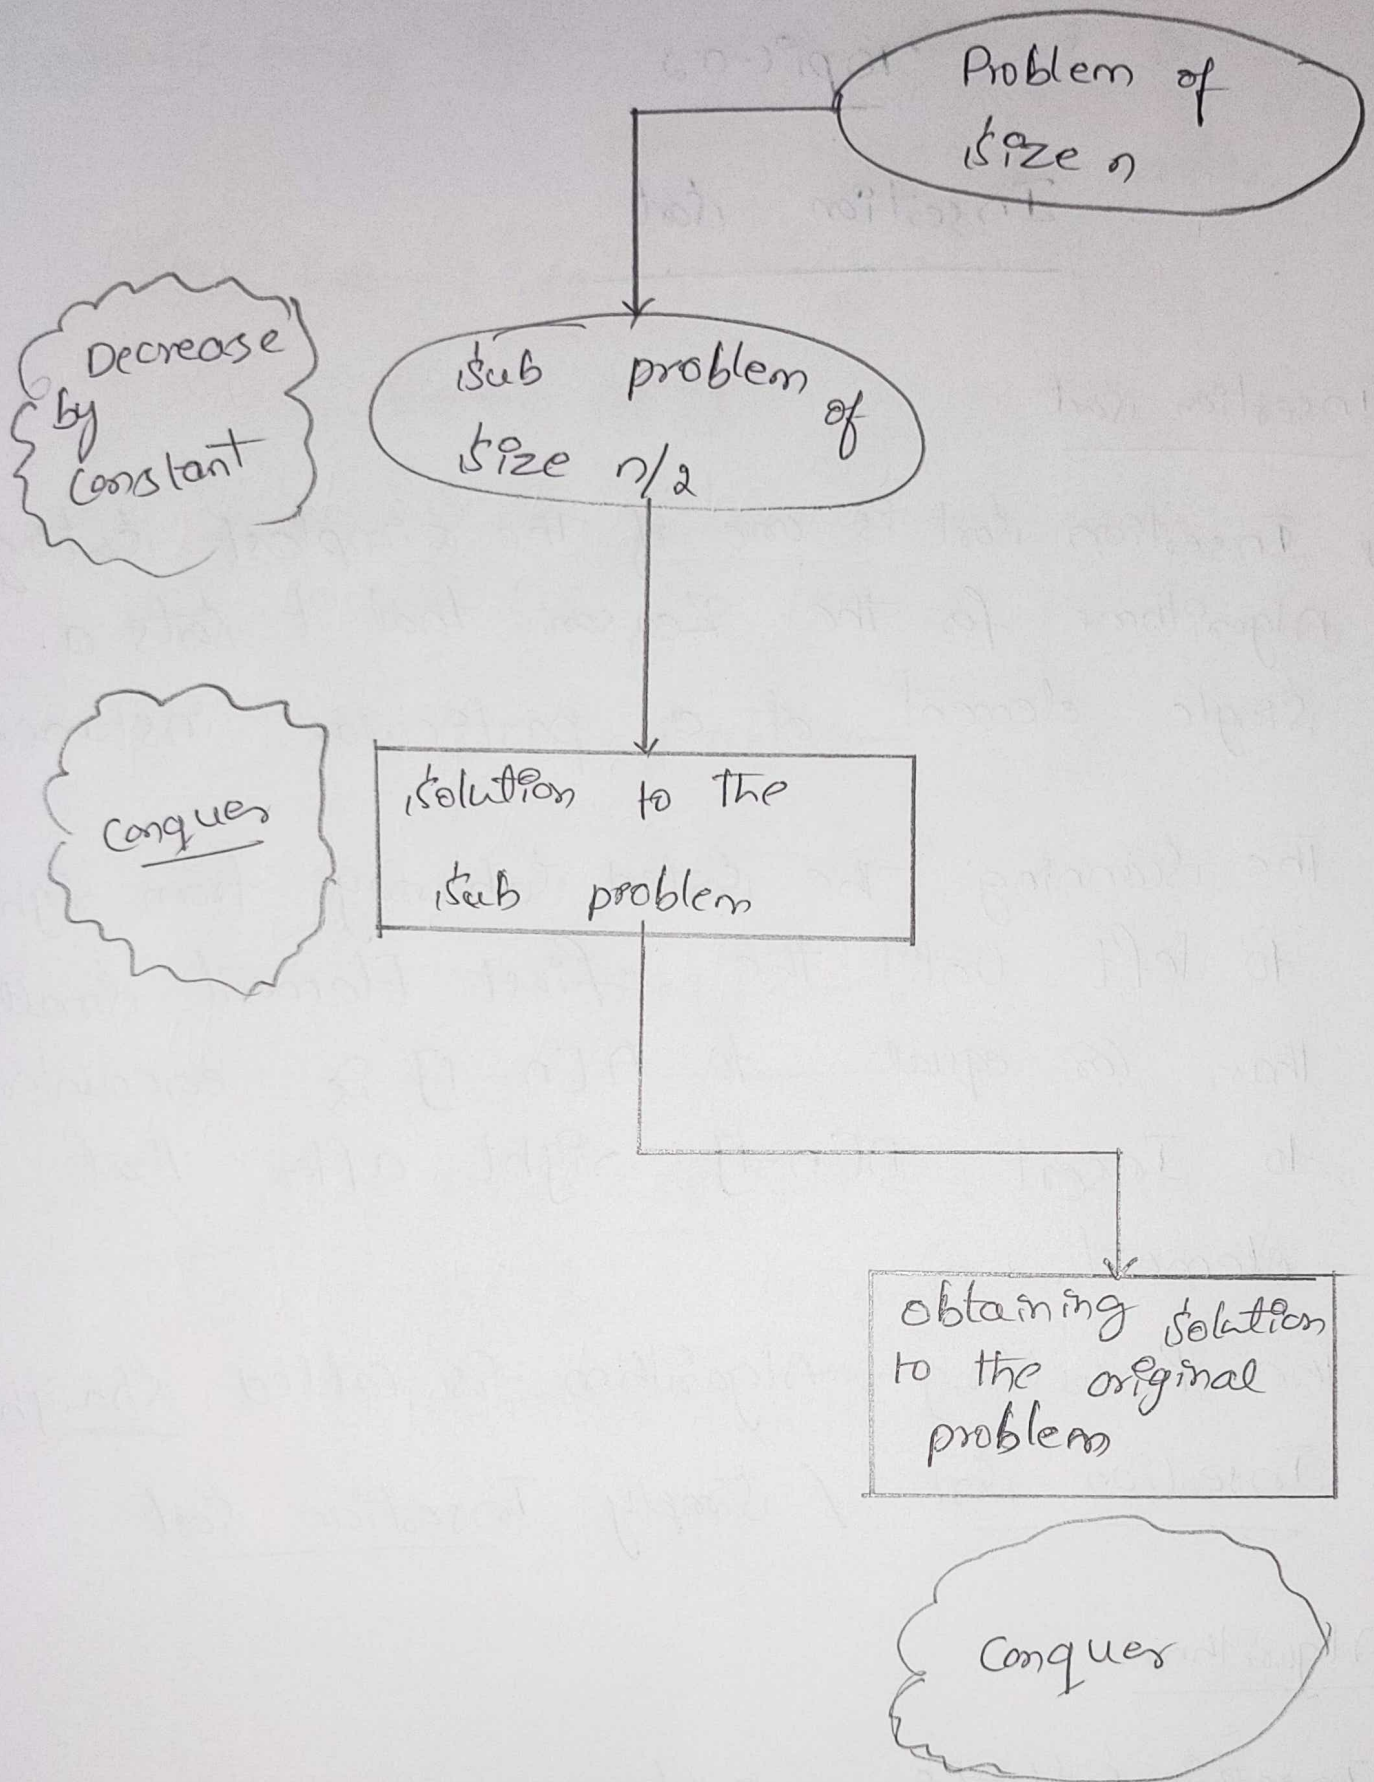 Problem of
size n
Decrease
by
constant
sub problem of
size n/2
conquer
solution to the
sub problem
obtaining solution
to the original
problem
conquer